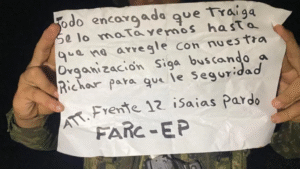 Todo encargado que traiga
Se lo mataremos hasta
que no arregle con nuestra
Organización siga buscando a
Richar para que le seguridad
ATT. Frente 12 isaias Pardo
FARC-EP